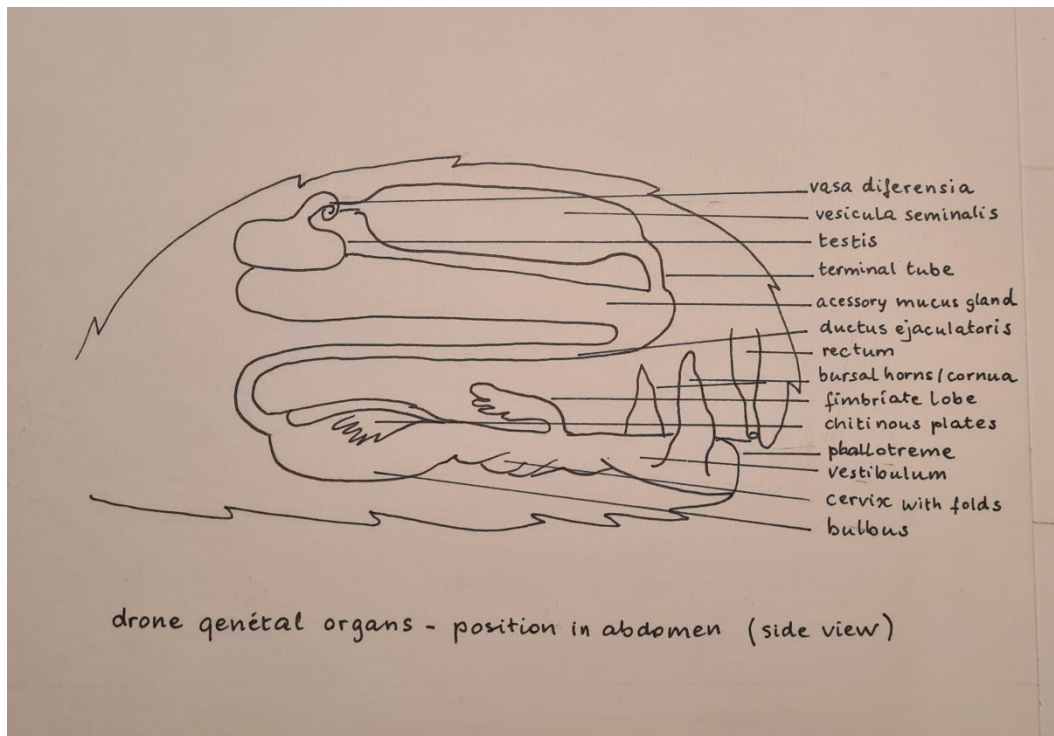 vasa diferensia
vesicula seminalis
testis
terminal tube
acessory mucus gland
ductus ejaculatoris
rectum
bursal horns/cornua
fimbriate lobe
chitinous plates
phallotreme
vestibulum
cervix with folds
bulbus
drone genétal organs - position in abdomen (side view)